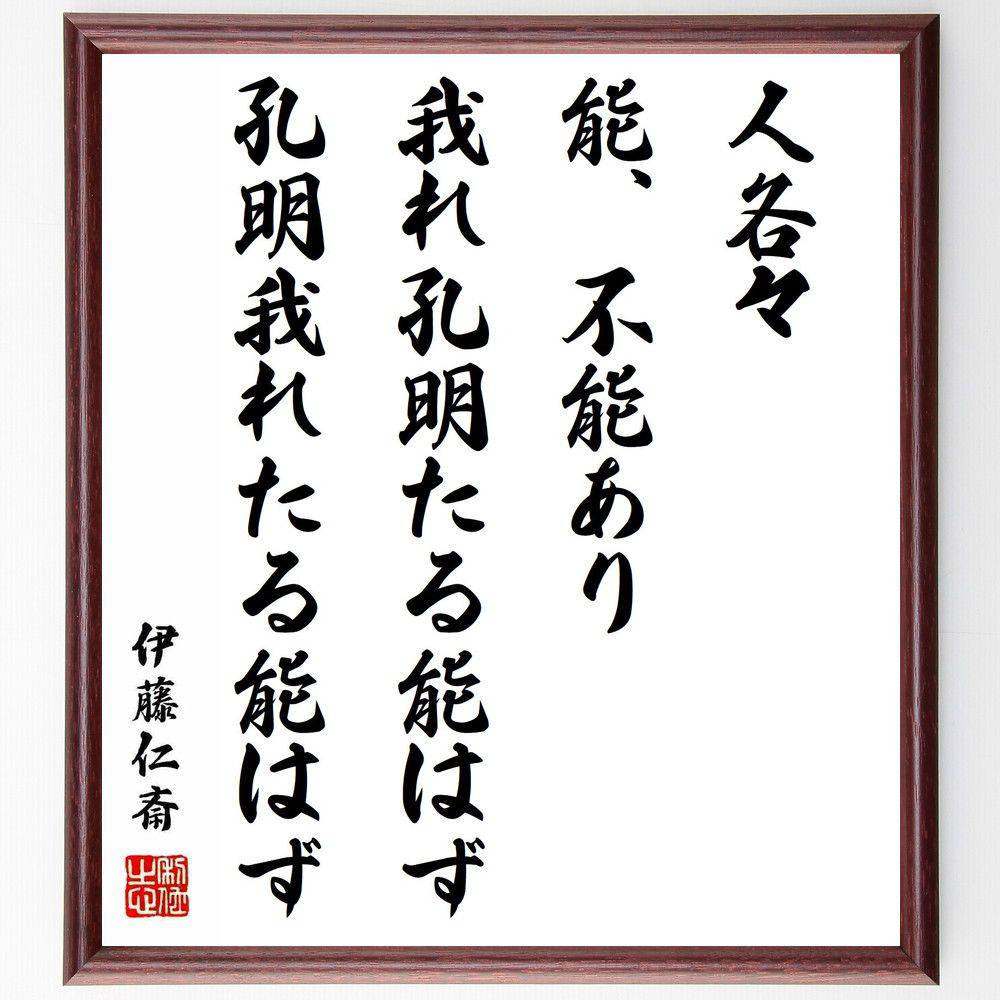 人各々
能、不能あり
我れ孔明たる能はず
孔明我れたる能はず
伊藤仁斎